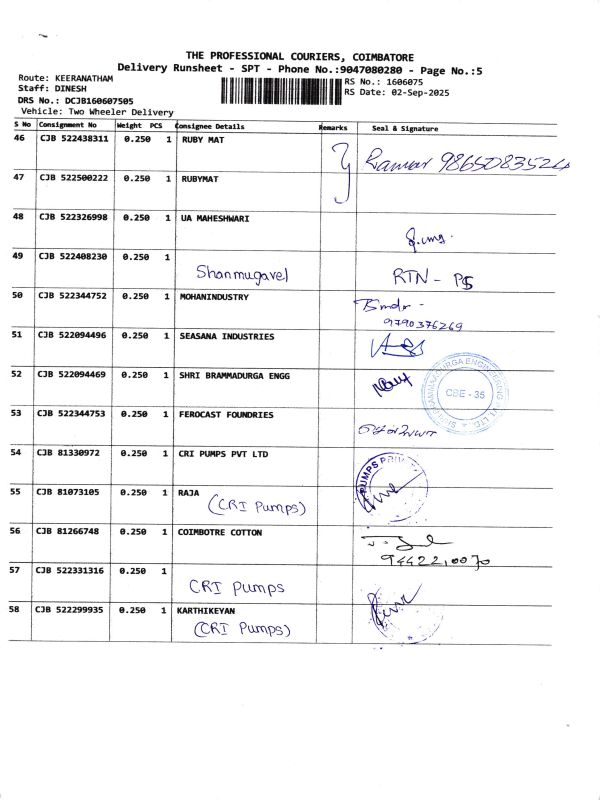 THE PROFESSIONAL COURIERS, COIMBATORE
Delivery Runsheet - SPT - Phone No.:9047080280 - Page No.:5
Route: KEERANATHAM
Staff: DINESH
DRS No.: DCJB160607505
Vehicle: Two Wheeler Delivery
RS No.: 1606075
RS Date: 02-Sep-2025
S No Consignment No Weight PCS Consignee Details Remarks Seal & Signature
46 CJB 522438311 0.250 1 RUBY MAT 9865083524
47 CJB 522500222 0.250 1 RUBYMAT
48 CJB 522326998 0.250 1 UA MAHESHWARI
49 CJB 522408230 0.250 1
Shanmugavel RTN - PS
50 CJB 522344752 0.250 1 MOHANINDUSTRY
9790376269
51 CJB 522094496 0.250 1 SEASANA INDUSTRIES
52 CJB 522094469 0.250 1 SHRI BRAMMADURGA ENGG
CBE - 35
53 CJB 522344753 0.250 1 FEROCAST FOUNDRIES
54 CJB 81330972 0.250 1 CRI PUMPS PVT LTD
55 CJB 81073105 0.250 1 RAJA
(CRI Pumps)
56 CJB 81266748 0.250 1 COIMBOTRE COTTON
9442210070
57 CJB 522331316 0.250 1
CRI Pumps
58 CJB 522299935 0.250 1 KARTHIKEYAN
(CRI Pumps)